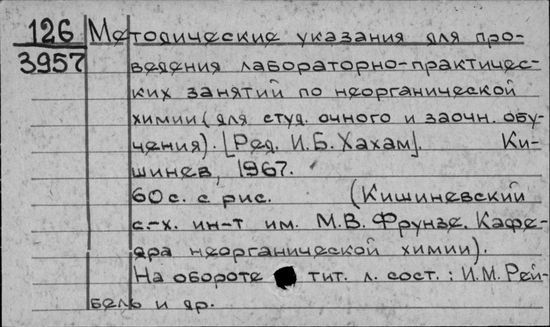 126 Методические указания для про-
3957 ведения лабораторно-практичес-
ких занятий по неорганической
химии (для студ. очного и заочн. обу-
чения). [Ред. И.Б. Хахам]. Ки-
шинев, 1967.
60 с. с рис. (Кишиневский
с.-х. ин-т им. М.В. Фрунзе. Кафе-
дра неорганической химии).
На обороте тит. л. сост.: И.М. Рей-
бель и др.